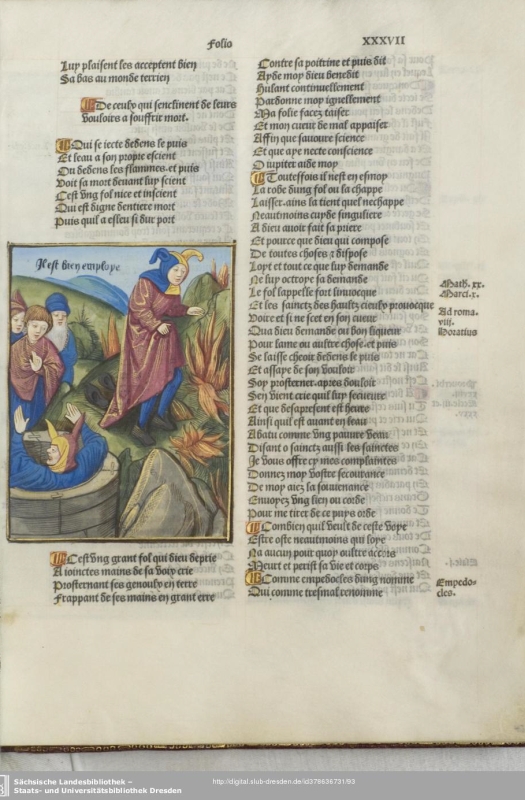 Folio XXXVII
Luy plaisent les acceptent bien
Sa bas au monde terrien
De ceulx qui senclinent de leurs
vouloirs a souffrir mort.
Qui se iecte dedens le puis
Et leau a son propre escient
Ou dedens les flammes et puis
Voit sa mort deuant luy scient
Cest vng fol nice et inscient
Qui est digne dentiere mort
Puis quil a esleu si dur port
Il est bien employe
Cest vng grant fol qui dieu deprie
A ioinctes mains de sa voix crie
Prosternant ses genoulx en terre
Frappant de ses mains en grant erre
Contre sa poitrine et puis dit
Ayde moy dieu benedit
Hulant continuellement
Pardonne moy ignellement
Ma folie facez taiser
Et mon cueur de mal appaiser
Affin que sauoure science
Et que aye necte conscience
O iupiter aide moy
Toutesfois il nest en esmoy
La robe dung fol ou la chappe
Laisser. ains la tient quel neschappe
Neautmoins cuyde singuliere
A dieu auoit fait sa priere
Et pource que dieu qui compose
De toutes choses z dispose
Loyt et tout ce que luy demande
Ne luy octroye sa demande
Le fol lappelle fort linuocque
Et les sanctz des haultz cieulx prouocque
Voire et si ne scet en son cueur
Qua dieu demande ou bon liqueur
Pour lame ou aultre chose. et puis
Se laisse cheoir dedens le puis
Et assaye de son vouloir
Soy prosterner. apres douloir
Sen vient crie quil luy sequeure
Et que desapresent est heure
Ainsi quil est auant en leau
Abatu comme vng pauure veau
Disant o sainctz aussi les sainctes
Je vous offre cy mes complaintes
Donnez moy vostre secourance
De moy aiez la souuenance
Enuoyez vng lien ou corde
Pour me tirer de ce puys orde
Combien quil veult de ceste voye
Estre oste neautmoins qui loye
Na aucun pour quoy oultre accors
Meurt et perist sa vie et corps
Comme empedocles dung nomme
Qui comme tresmal renomme
Math. xx.
Marci. x.
Ad roma.
viii.
Horatius
Empedo-
cles.
Sächsische Landesbibliothek –
Staats- und Universitätsbibliothek Dresden
http://digital.slub-dresden.de/id378636731/93